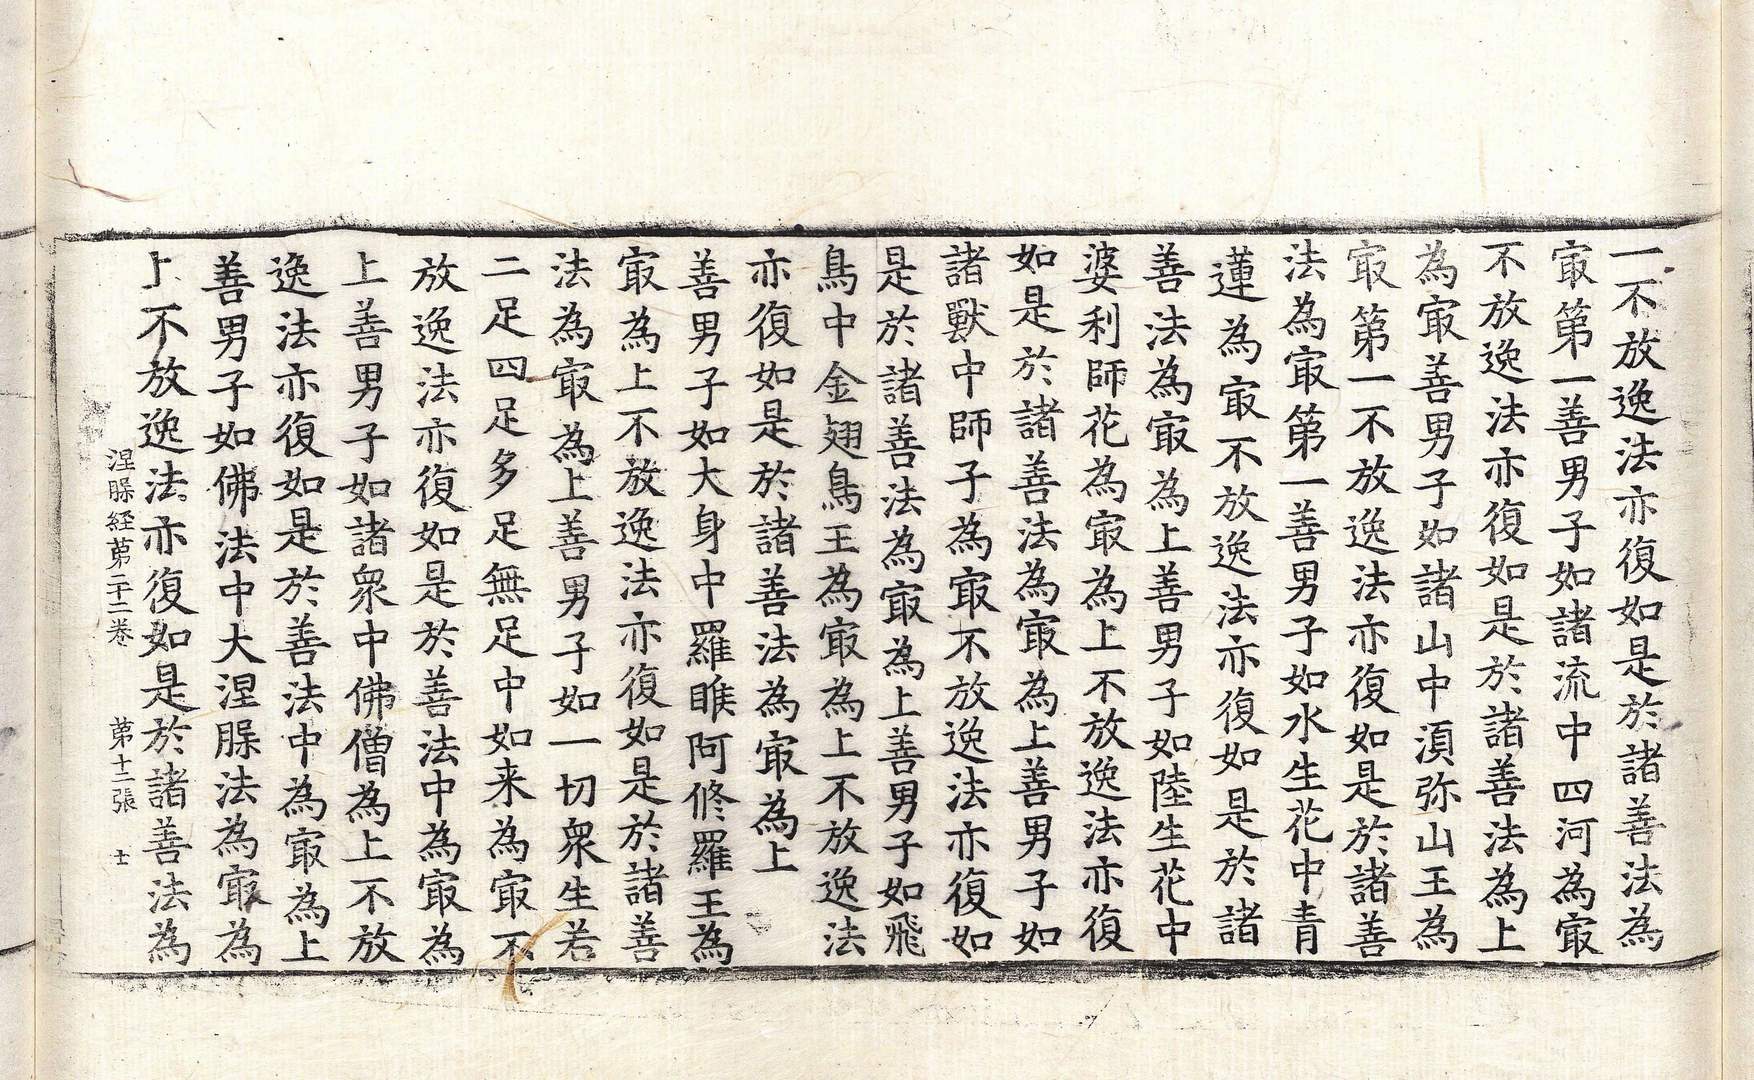 一不放逸法亦復如是於諸善法為
㝡第一善男子如諸流中四河為㝡
不放逸法亦復如是於諸善法為上
為㝡善男子如諸山中湏弥山王為
㝡第一不放逸法亦復如是於諸善
法為㝡第一善男子如水生花中青
蓮為㝡不放逸法亦復如是於諸
善法為㝡為上善男子如陸生花中
婆利師花為㝡為上不放逸法亦復
如是於諸善法為㝡為上善男子如
諸獸中師子為㝡不放逸法亦復如
是於諸善法為㝡為上善男子如飛
鳥中金翅鳥王為㝡為上不放逸法
亦復如是於諸善法為㝡為上
善男子如大身中羅睺阿修羅王為
㝡為上不放逸法亦復如是於諸善
法為㝡為上善男子如一切衆生若
二足四足多足無足中如来為㝡不
放逸法亦復如是於善法中為㝡為
上善男子如諸衆中佛僧為上不放
逸法亦復如是於善法中為㝡為上
善男子如佛法中大涅槃法為㝡為
上不放逸法亦復如是於諸善法為
涅槃経苐二十二卷 苐十二張 士